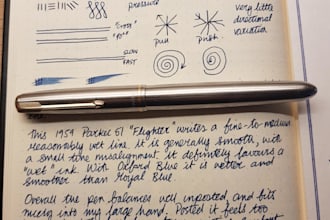 pressure
very little
directional
variation
"cross"
"down"
pull
push
SLOW
FAST
This 1959 Parker 51 "Flighter" writes a fine-to-medium
reasonably wet line. It is generally smooth, with
a small tone misalignment. It definitely favours a
"wet" ink. With Oxford Blue it is wetter and
smoother than Royal Blue.
Overall the pen balances well unposted, and fits
nicely into my large hand. Posted it feels too